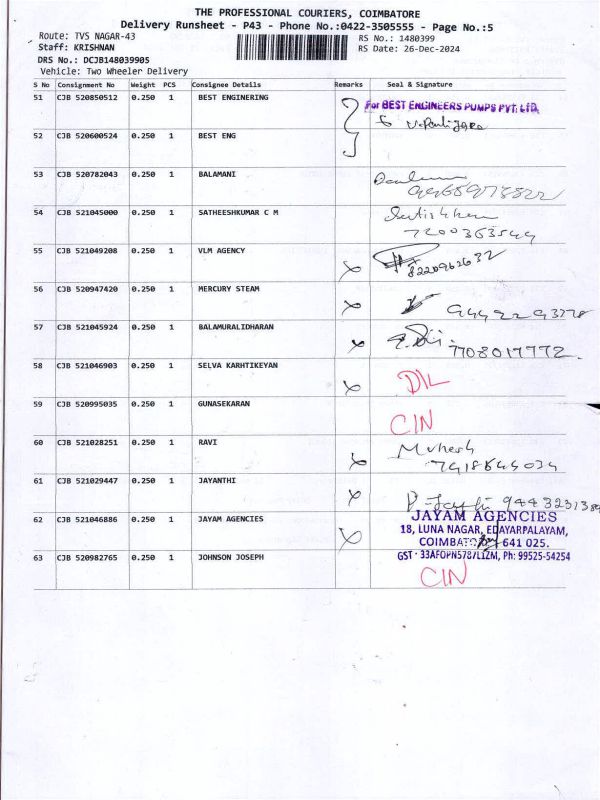 THE PROFESSIONAL COURIERS, COIMBATORE
Delivery Runsheet - P43 - Phone No.:0422-3505555 - Page No.:5
Route: TVS NAGAR-43 RS No.: 1480399
Staff: KRISHNAN RS Date: 26-Dec-2024
DRS No.: DCJB148039905
Vehicle: Two Wheeler Delivery
S No Consignment No Weight PCS Consignee Details Remarks Seal & Signature
51 CJB 520850512 0.250 1 BEST ENGINERING For BEST ENGINEERS PUMPS PVT. LTD.
52 CJB 520600524 0.250 1 BEST ENG
53 CJB 520782043 0.250 1 BALAMANI
54 CJB 521045000 0.250 1 SATHEESHKUMAR C M
7200363544
55 CJB 521049208 0.250 1 VLM AGENCY
8220962632
56 CJB 520947420 0.250 1 MERCURY STEAM
57 CJB 521045924 0.250 1 BALAMURALIDHARAN
7708017772
58 CJB 521046903 0.250 1 SELVA KARHTIKEYAN D/L
59 CJB 520995035 0.250 1 GUNASEKARAN CIN
60 CJB 521028251 0.250 1 RAVI Mukesh
61 CJB 521029447 0.250 1 JAYANTHI
62 CJB 521046886 0.250 1 JAYAM AGENCIES JAYAM AGENCIES
18, LUNA NAGAR, EDAYARPALAYAM,
COIMBATORE 641 025.
63 CJB 520982765 0.250 1 JOHNSON JOSEPH GST : 33AFOPN5787L1ZM, Ph: 99525-54254
CIN